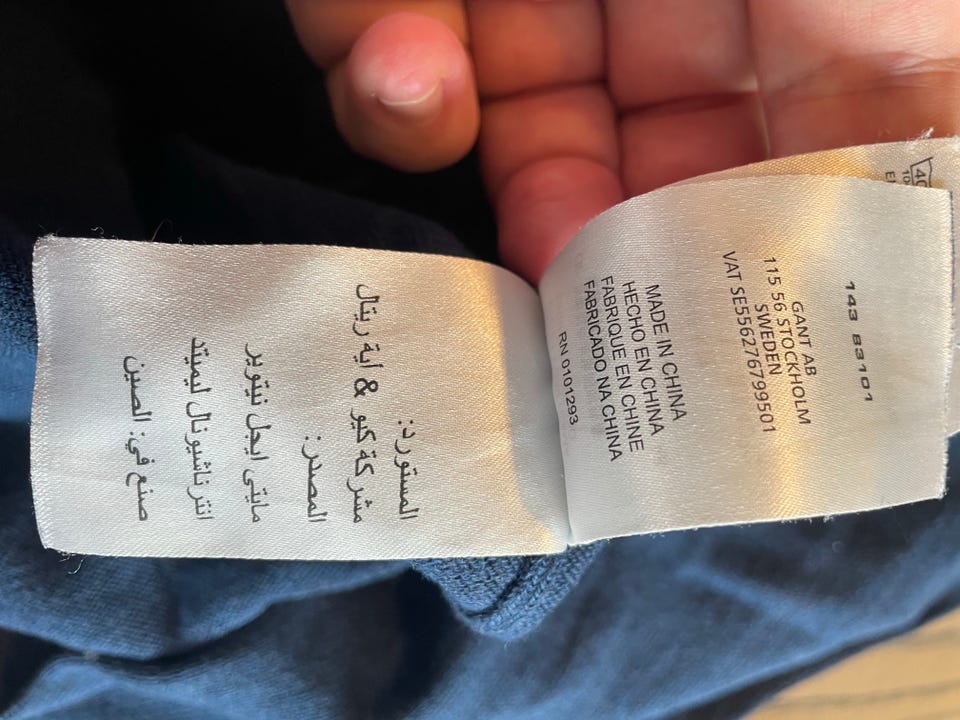 143 83101
GANT AB
115 56 STOCKHOLM
SWEDEN
VAT SE556276799501
MADE IN CHINA
HECHO EN CHINA
FABRIQUE EN CHINE
FABRICADO NA CHINA
RN 0101293
المستورد:
مشركة كيو & اية ريتال
المصدر:
مايتى ايجل نيتوير
انترناشيونال ليميتد
صنع في: الصين
40